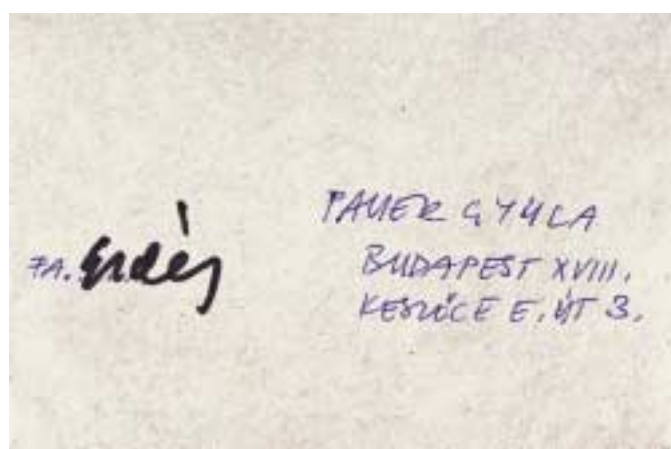 FA. Erdély
PAUER GYULA
BUDAPEST XVIII.
E. ÚT 3.